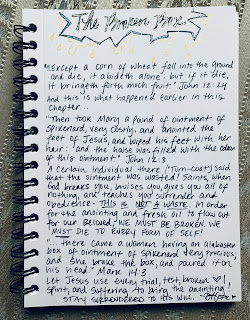 The Broken Box
"Except a corn of wheat fall into the ground
and die, it abideth alone: but if it die,
it bringeth forth much fruit." John 12:24
And this is what happened earlier in this
chapter...
"Then took Mary a pound of ointment of
spikenard, very costly, and anointed the
feet of Jesus, and wiped his feet with her
hair: and the house was filled with the odor
of this ointment." John 12:3
A certain individual there (Turn-coat) said
that the ointment was wasted! Saints, when
God breaks you, bruises you, gives you all of
nothing, and teaches you surrender and
obedience - THIS IS NOT A WASTE. In order
for the anointing and fresh oil to flow out
for our Beloved, WE MUST BE BROKEN. WE
MUST DIE TO EVERY FORM OF SELF!
"... there came a woman having an alabaster
box of ointment of spikenard very precious,
and she brake the box, and poured it on
his head." Mark 14:3
Let Jesus use every trial, test, broken
spirit, and suffering to bring the anointing.
STAY SURRENDERED TO HIS WILL.